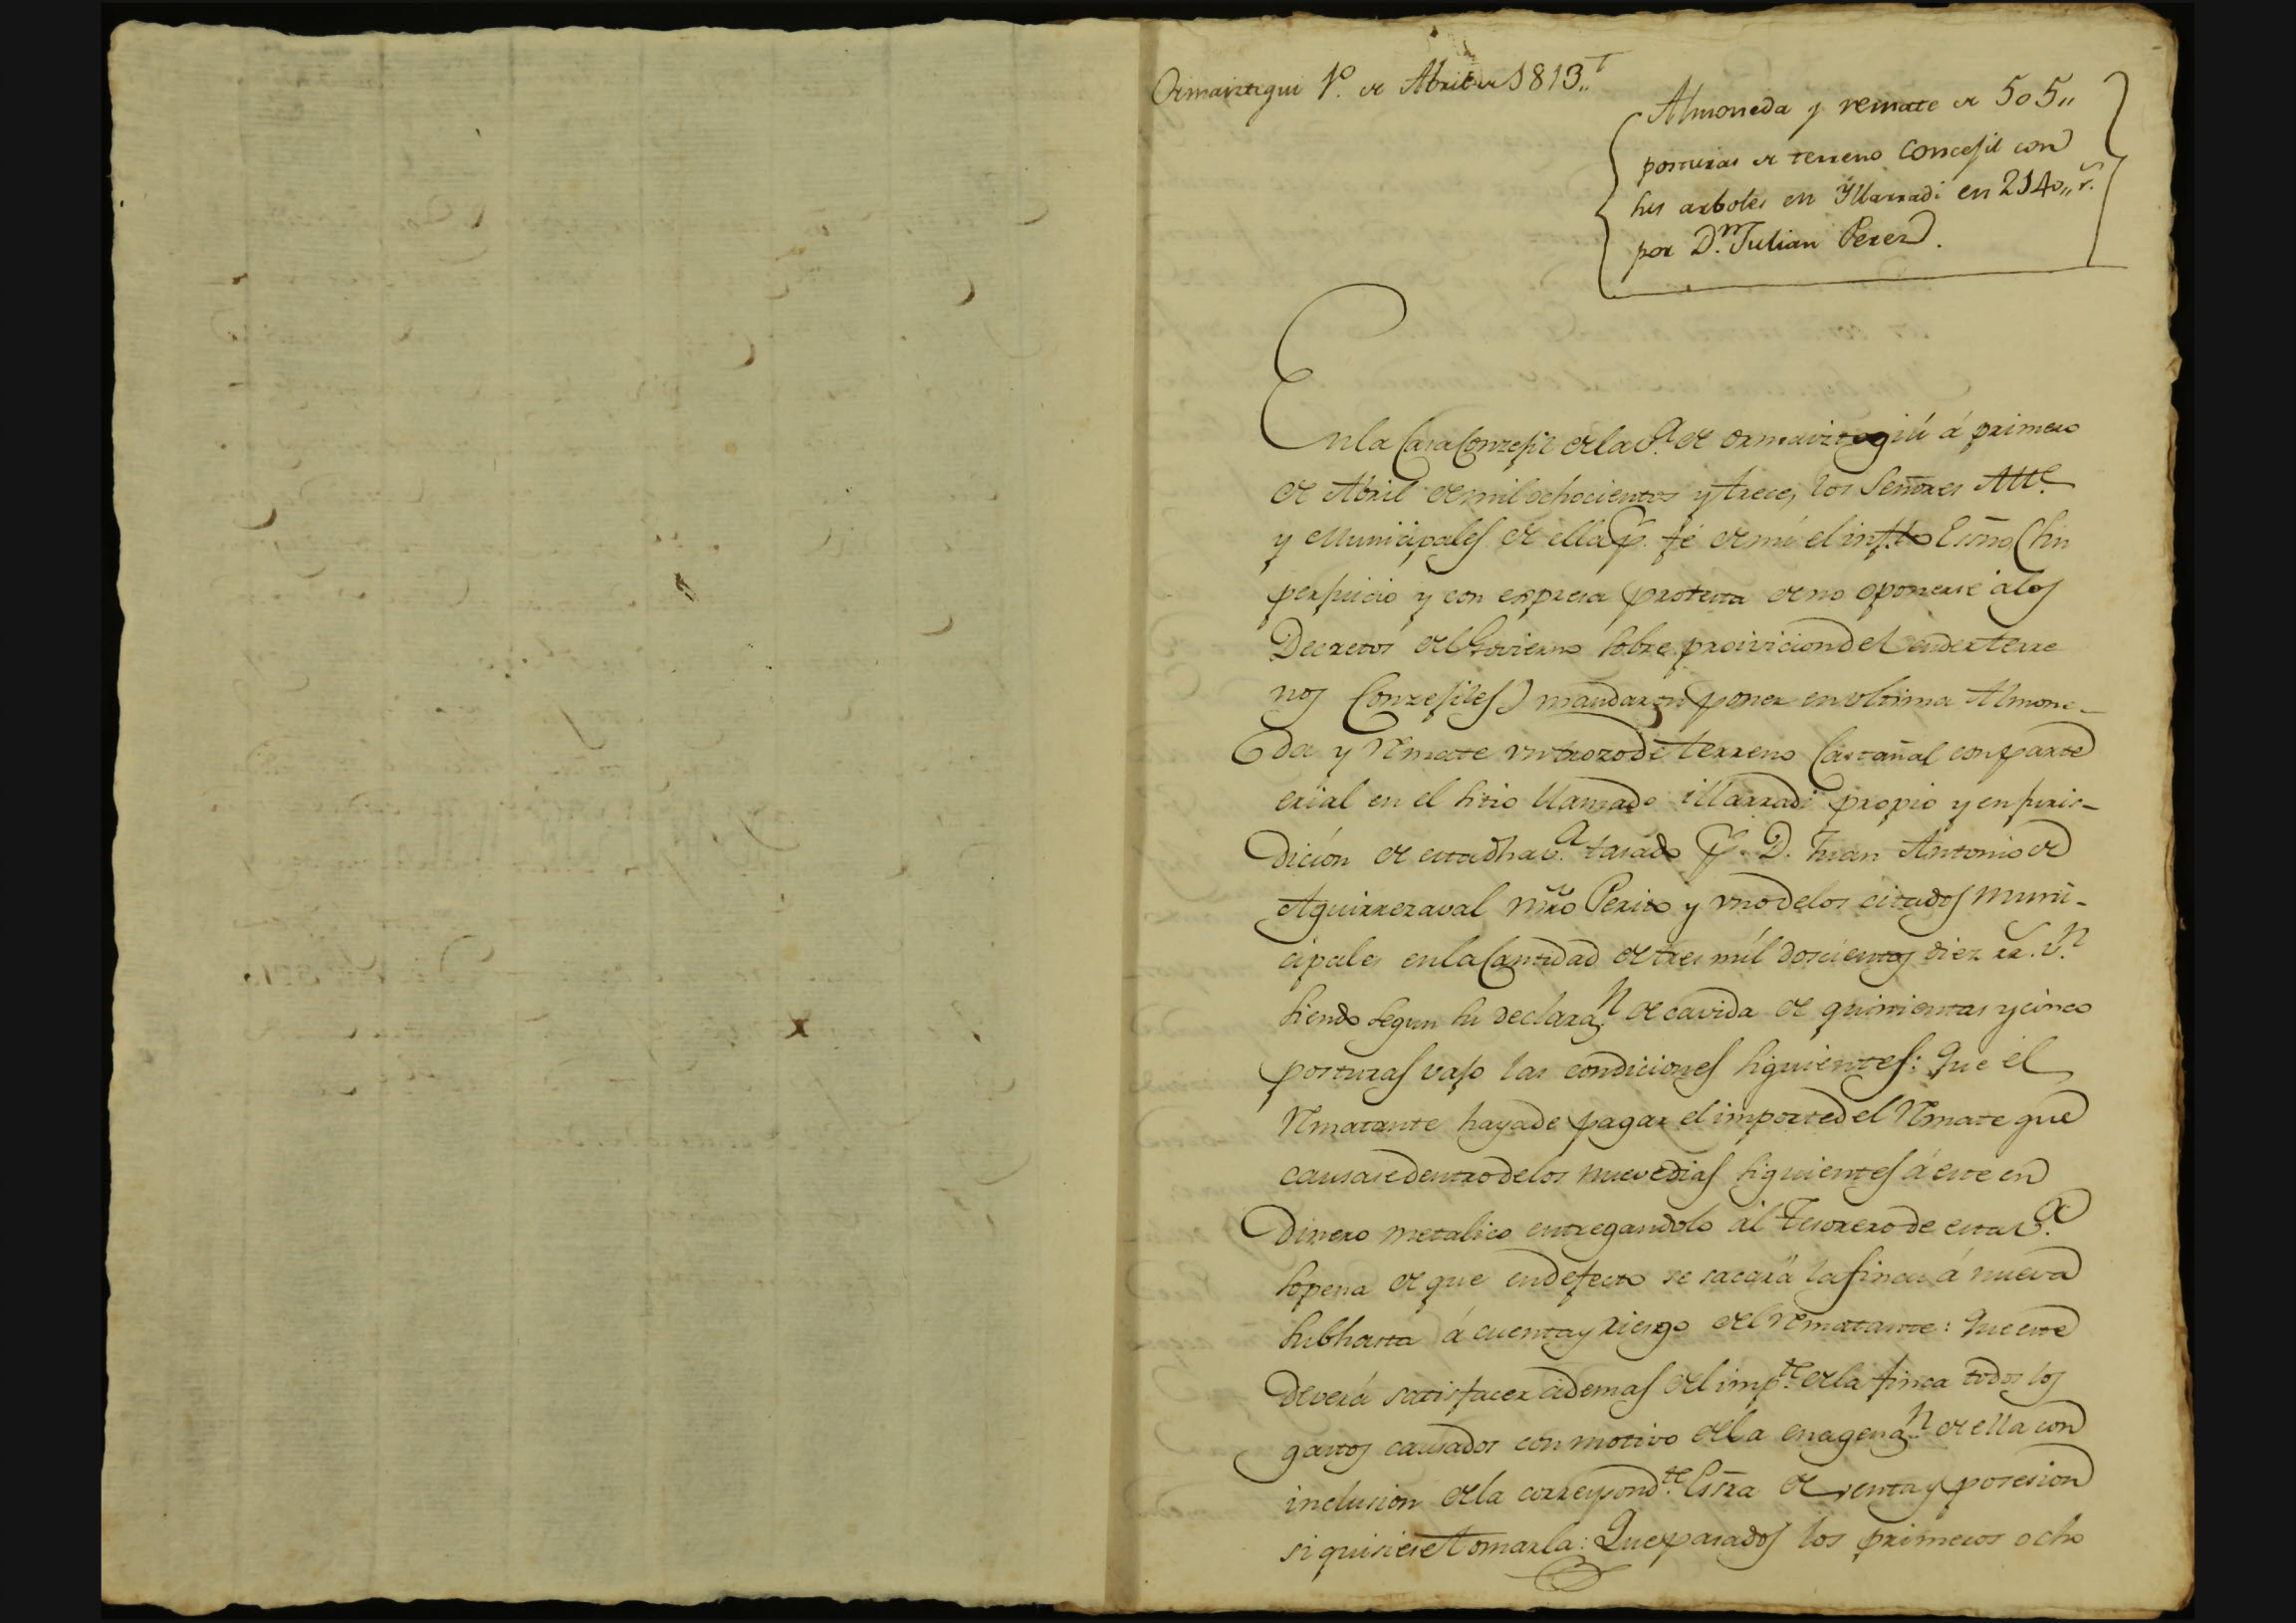 Ormaiztegui 1º. de Abril de 1813,,
Almoneda y remate de 505,,
posturas de terreno Concejil con
sus arboles en Yllarradi en 2140,, rs.
por Dn. Julian Perez.
En la Casa Conzejil de la va. de ormaiztegiú á primero
de Abril de mil ochocientos y trece, los Señores Alle.
y Municipales de ella p. fé de mi el infto Esño (sin
perjuicio y con expresa protesta de no oponerse à los
Decretos del Govierno sobre proivicion del vender terre
nos Conzejiles) mandaron poner en vltima Almone-
da y Remate vn trozo de terreno Castañal con parte
erial en el sitio llamado illarradi propio y en juris-
dición de esta dha va. tasado pr. D. Juan Antonio de
Aguirrezaval Mro Perito y vno de los citados Muni-
cipales en la Cantidad de tres mil doscientos diez rs. vn.
siendo segun su declaran. de cavida de quinientas y cinco
posturas vajo las condiciones siguientes: Que él
Rematante haya de pagar el importe del Remate que
causase dentro de los nueve dias siguientes á este en
dinero metalico entregandolo al Tesorero de esta va.
sopena de que en defecto se sacará la finca á nueva
subhasta á cuenta y riesgo del Rematante: Que este
deverá satisfacer ademas del impte. de la finca todos los
gastos causados con motivo de la enagenan. de ella con
inclusion de la correspondte. Essra de venta y posesion
si quisiese tomarla: Que pasados los primeros ocho